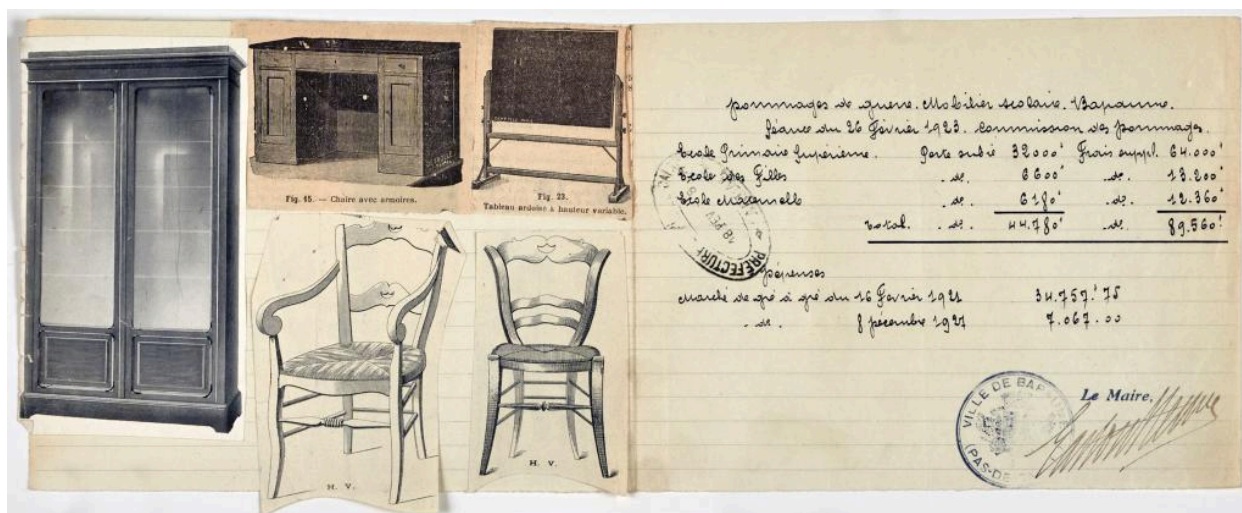 Fig. 15. — Chaire avec armoires.
Fig. 23.
Tableau ardoise à hauteur variable.
H. V.
H. V.
Dommages de guerre. Mobilier scolaire. Bapaume.
Séance du 26 Février 1923. Commission des Dommages.
Ecole Primaire Supérieure. Perte subie 32000f Frais suppl. 64.000f
Ecole des Filles . do. 6600f . do. 13.200f
Ecole Maternelle . do. 6180f . do. 12.360f
Total. . do. 44.780f . do. 89.560f
PREFECTURE
18 FEV
Dépenses
Marché de gré à gré du 16 Février 1921 34.757f75
- do. 8 Décembre 1921 7.067.00
Le Maire,
VILLE DE BAPAUME
(PAS-DE-